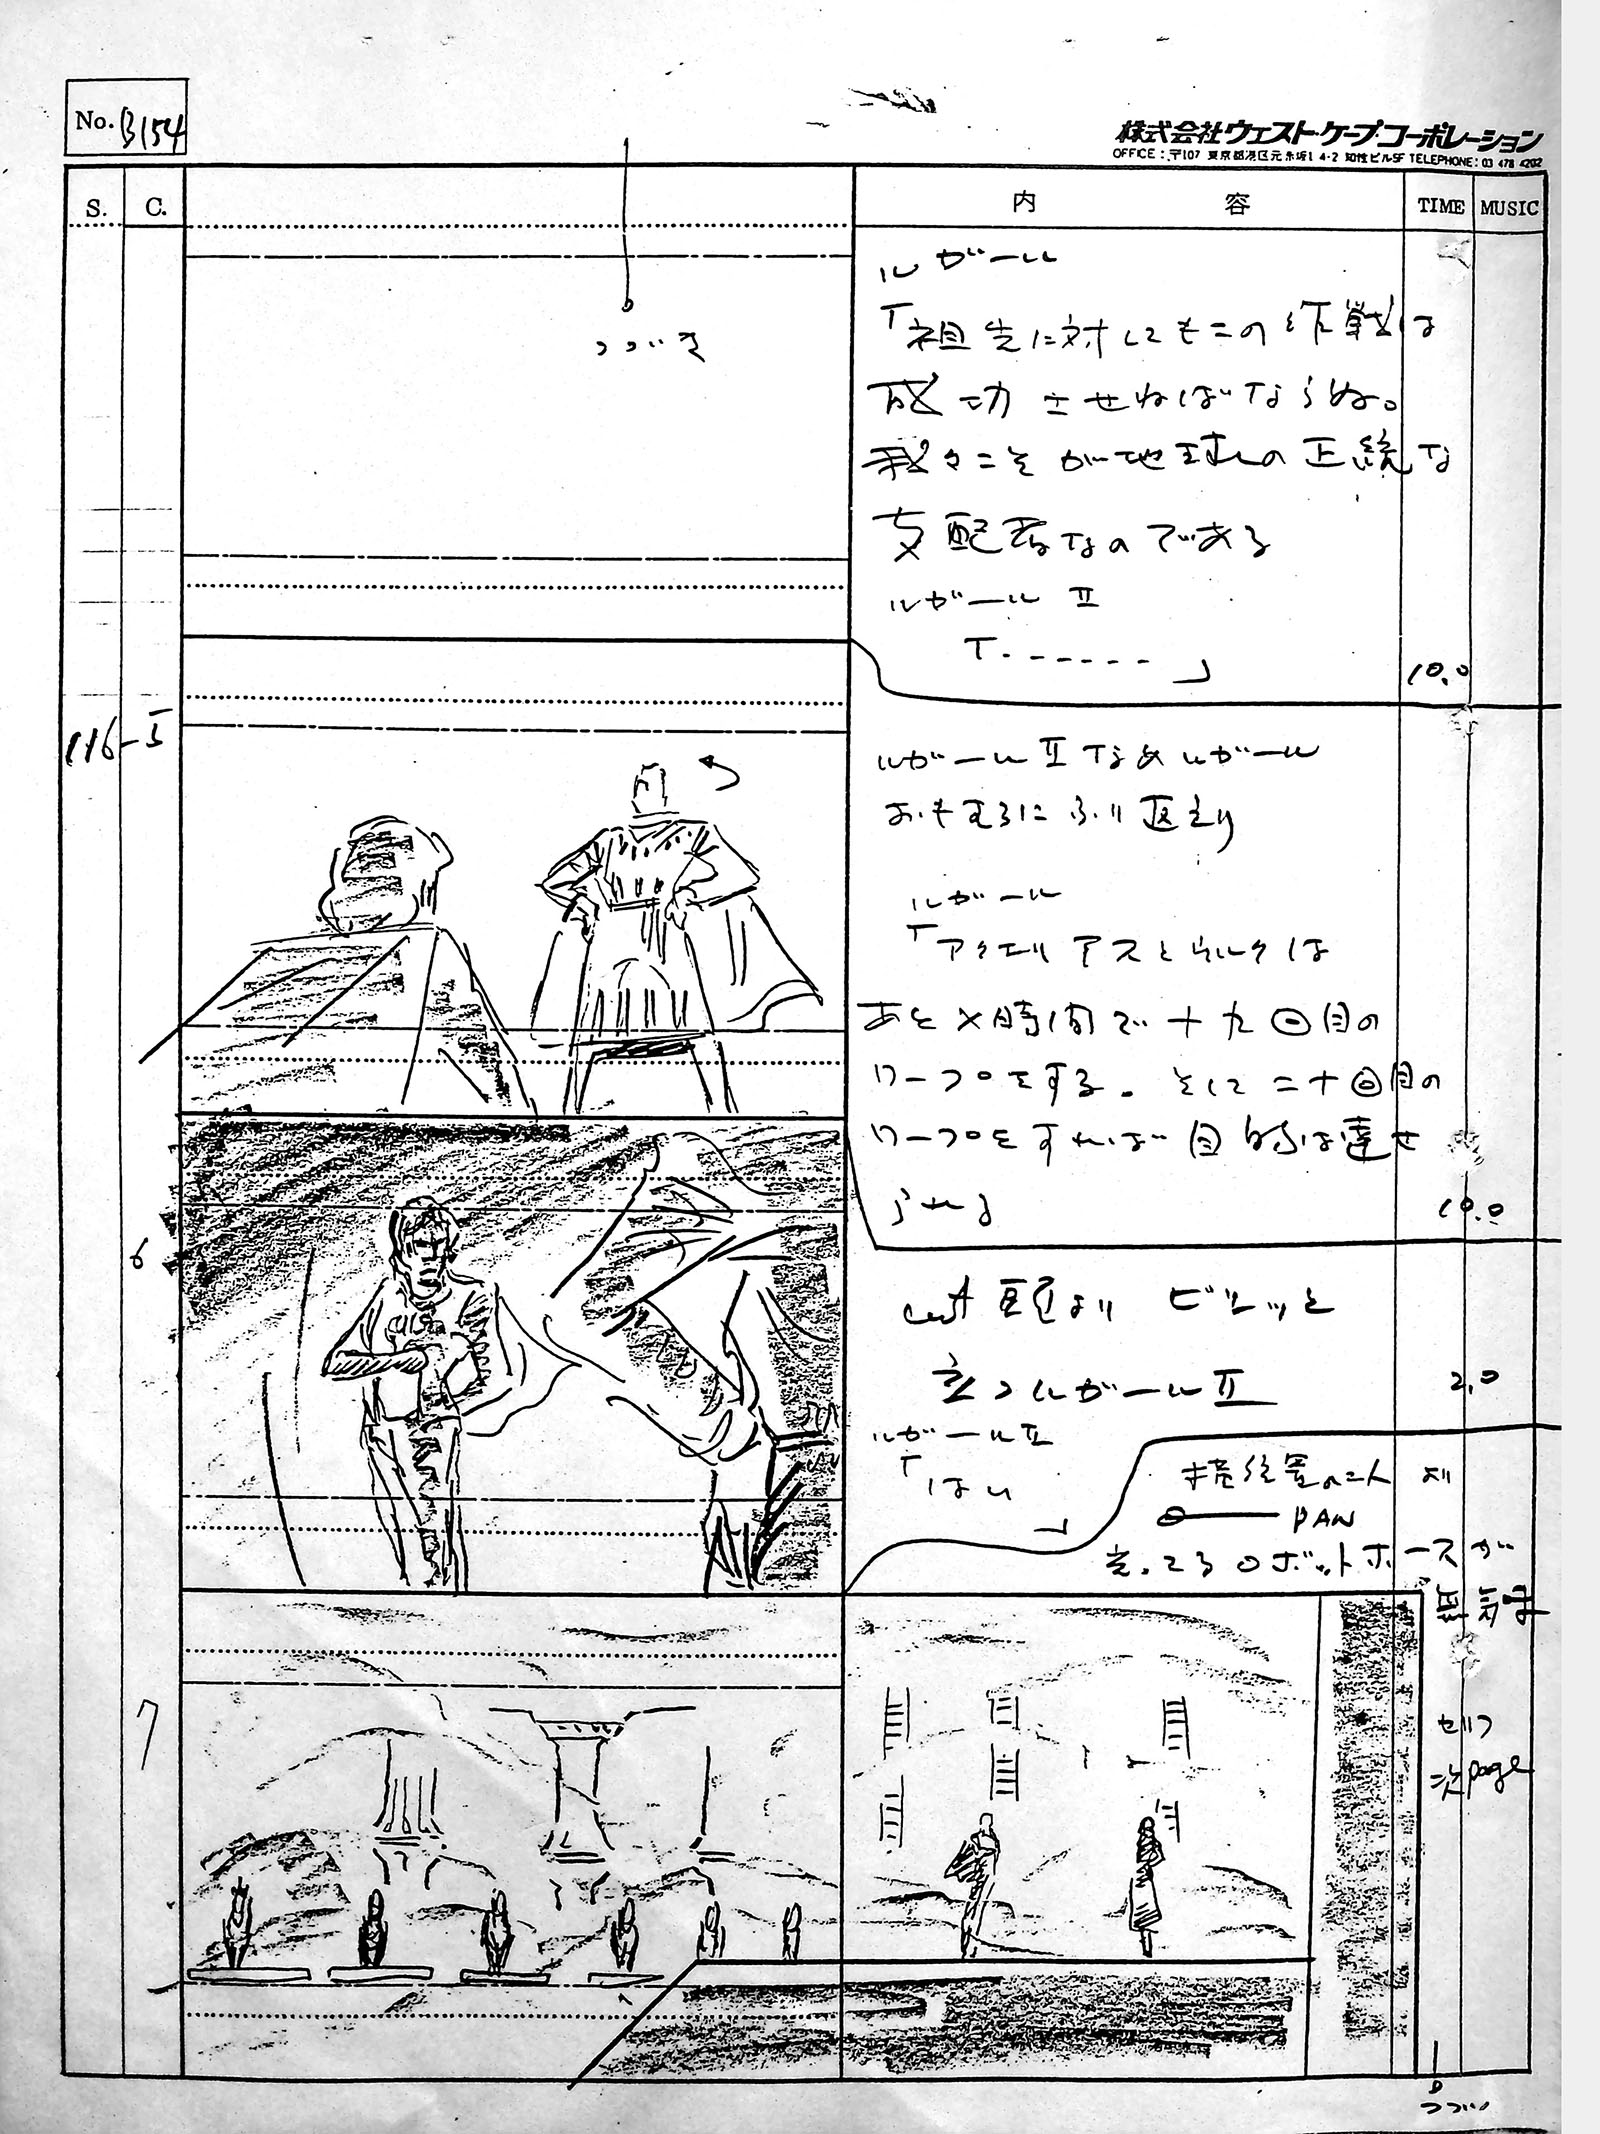 No. B154
株式会社ウェスト・ケープ・コーポレーション
OFFICE：〒107 東京都港区元赤坂1 4-2 知性ビル5F TELEPHONE：03 478 4202
S. C. 内容 TIME MUSIC
つづき
ルガール
「祖先に対してもこの作戦は
成功させねばならぬ。
我々こそが地球の正統な
支配者なのである
ルガール Ⅱ
「・-----」
10.0
116-5
ルガールⅡなめルガール
おもむろにふり返り
ルガール
「アクエリアスとウルクは
あと×時間で十九回目の
ワープをする。そして二十回目の
ワープをすれば目的は達せ
られる
10.0
6
cut頭より ピシッと
立つルガールⅡ
2.0
ルガールⅡ
「はい
」
位置の二人
PAN
立ってるロボットホースが
不気味
7
セリフ
次page
つづく